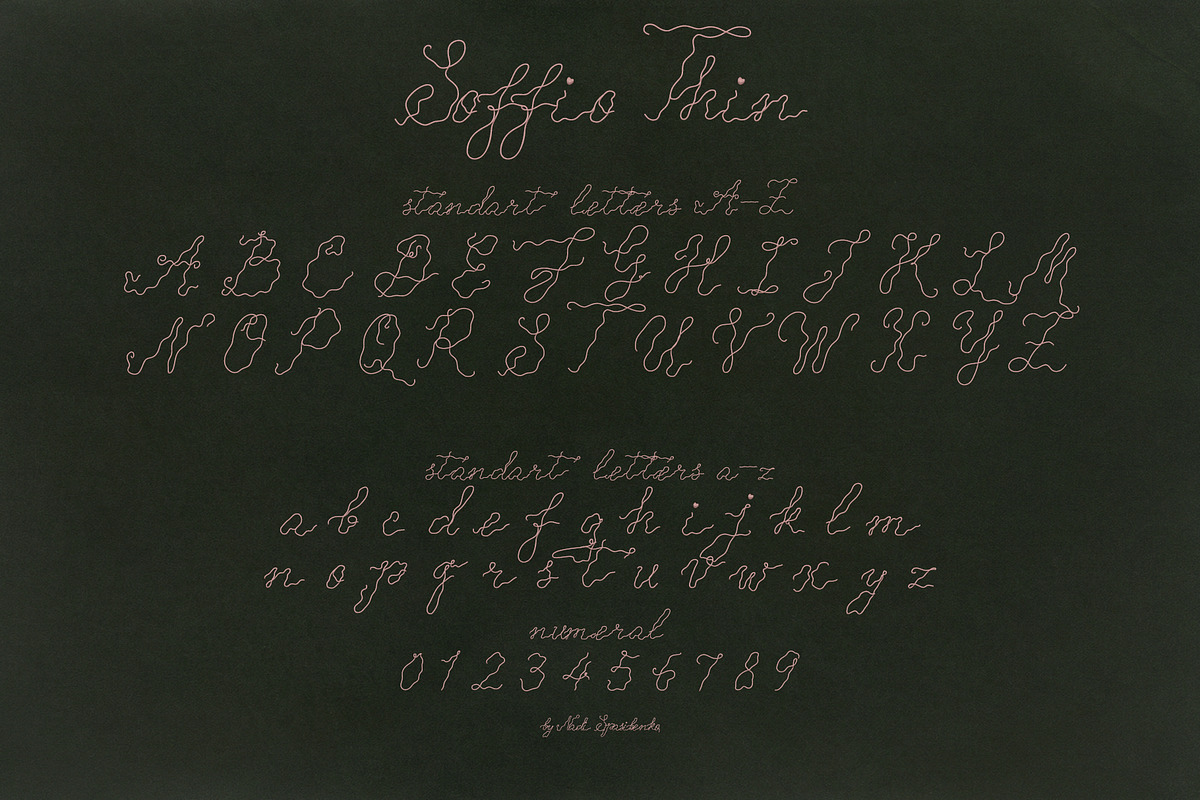 Soffio Thin
standart letters A-Z
A B C D E F G H I J K L M
N O P Q R S T U V W X Y Z
standart letters a-z
a b c d e f g h i j k l m
n o p q r s t u v w x y z
numeral
0 1 2 3 4 5 6 7 8 9
by Nadi Spasibenko